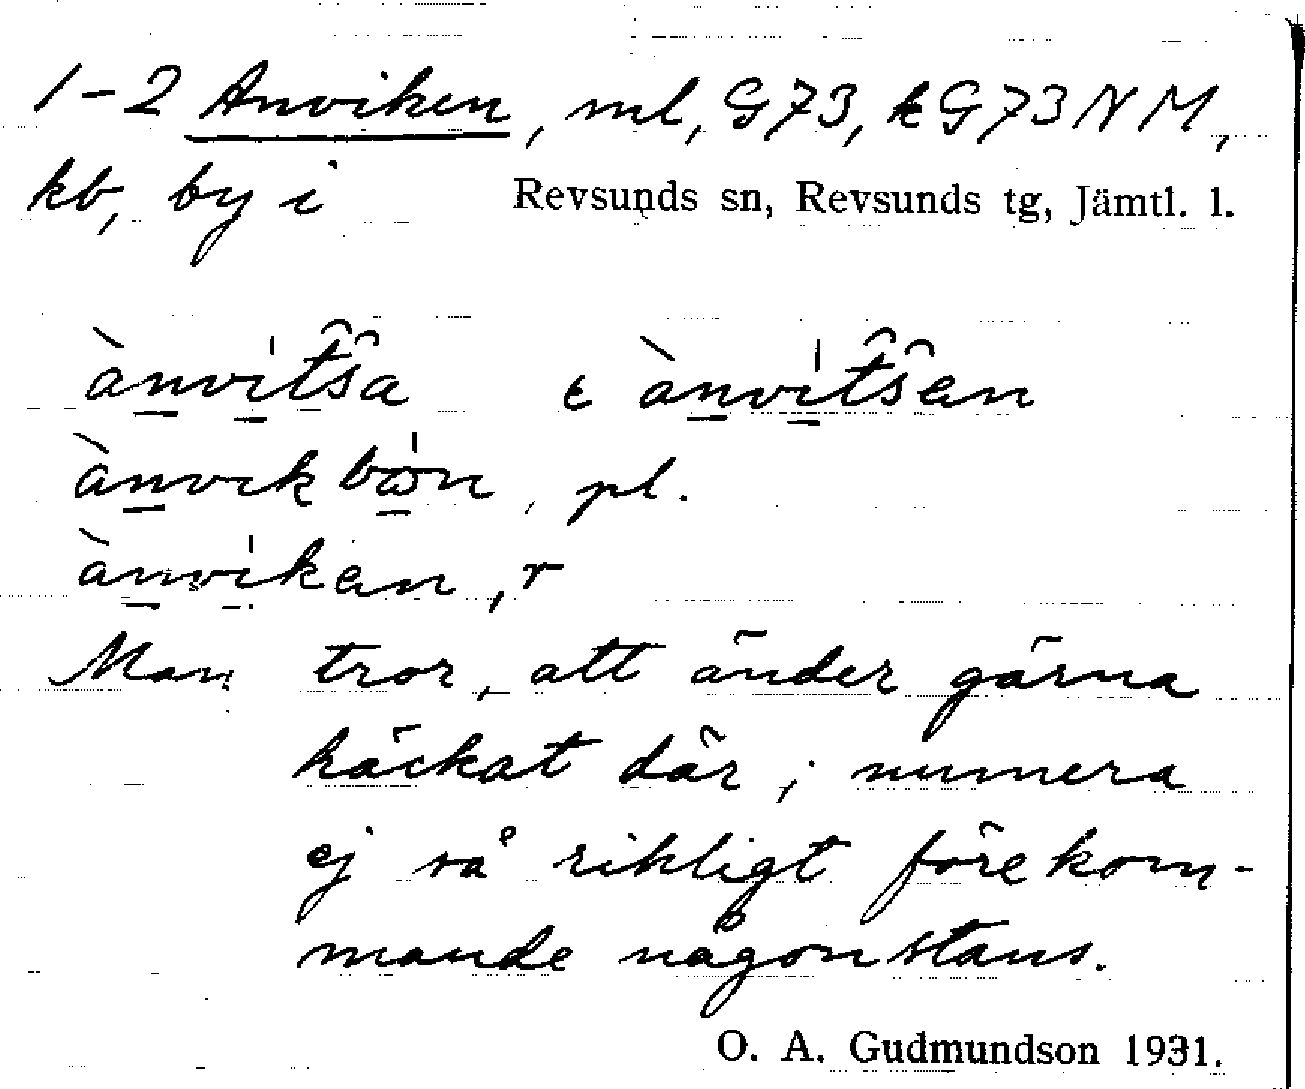 1-2 Anviken, ml, G73, kG73NM,
kb, by i Revsunds sn, Revsunds tg, Jämtl. l.
ànvit̂ŝa ànvit̂ŝen
ànvikbön, pl.
ànviken, r
Man tror, att änder gärna
häckat där; numera
ej så rikligt förekom-
mande någonstans.
O. A. Gudmundson 1931.